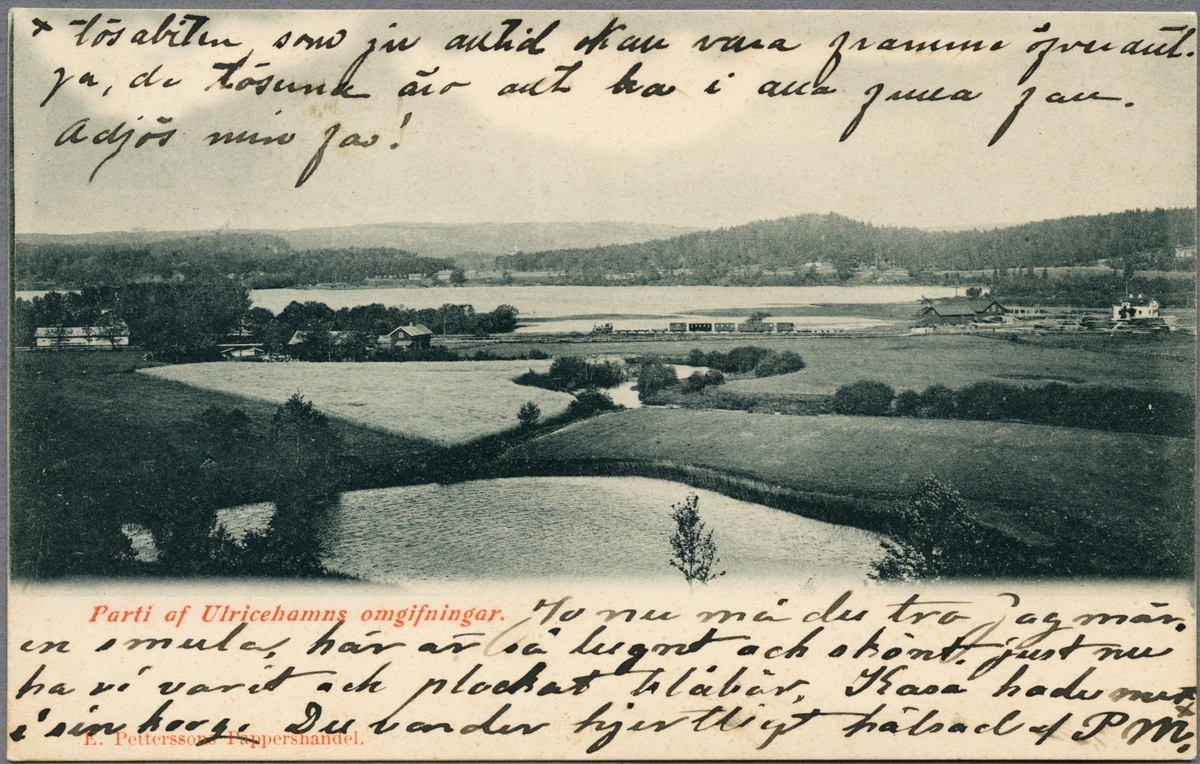 * tösabiten, som ju alltid skall vara framme öfverallt.
ja, de tösuna äro allt bra i alla fulla fall.
Adjös min far!
Parti af Ulricehamns omgifningar.
Jo nu må du tro jag mår.
en smula, här är så lugnt och skönt, just nu
ha vi varit och plockat blåbär, Kasa hade mest
i sin korg. Du vander hjertligt hälsad af P M.
E. Petterssons Pappershandel.